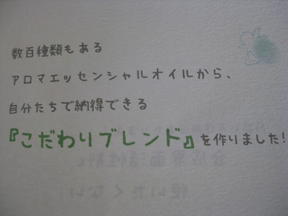 数百種類もある
アロマエッセンシャルオイルから、
自分たちで納得できる
『こだわりブレンド』を作りました!